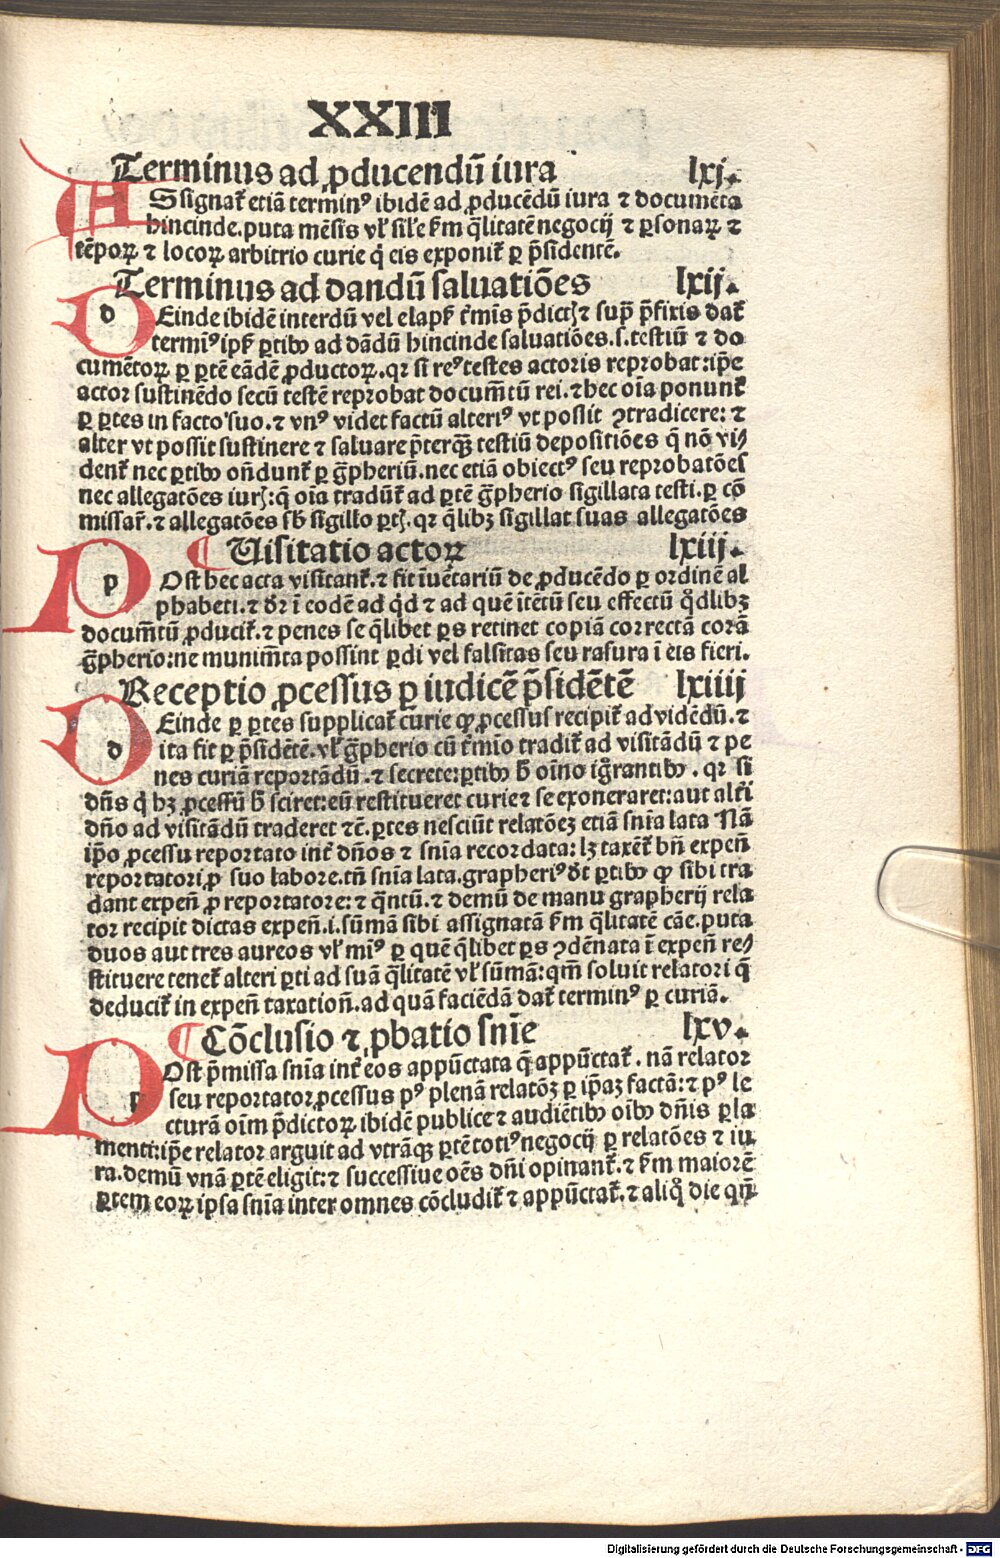 XXIII
Terminus ad ꝓducendū iura lxj.
ASsignat᷑ etiā terminꝰ ibidē ad ꝓducēdū iura ⁊ documēta
hincinde.puta mēsis vl̓ sil̓e ẜm q̄litatē negocij ⁊ ꝑsonaꝝ ⁊
tēpoꝝ ⁊ locoꝝ arbitrio curie q̇ eis exponit᷑ ꝑ p̄sidentē.
Terminus ad dandū saluatiōes lxij.
dEinde ibidē interdū vel elapẜ t̓mīs p̄dictꝭ ⁊ suꝑ p̄fixis dat᷑
termīꝰ ipẜ ꝑtibꝰ ad dādū hincinde saluatiōes.s.testiū ⁊ do
cumētoꝝ ꝑ ꝑtē eādē ꝓductoꝝ.qꝛ si reꝰ testes actoris reprobat:ip̄e
actor sustinēdo secū testē reprobat documētū rei.⁊ hec oīa ponunt᷑
ꝑ ꝑtes in facto suo.⁊ vnꝰ videt factū alteriꝰ vt possit ꝯtradicere: ⁊
alter vt possit sustinere ⁊ saluare p̄terqꝫ testiū depositiōes q̄ nō vi⸗
dent᷑ nec ꝑtibꝰ on̄dunt᷑ ꝑ g̃pheriū.nec etiā obiectꝰ seu reprobatōes
nec allegatōes iurꝭ:q̄ oīa tradūt᷑ ad ꝑtē g̃pherio sigillata testi.ꝑ cō
missar̄.⁊ allegatōes sb̄ sigillo ꝑtꝭ.qꝛ q̄libꝫ sigillat suas allegatōes
¶ Uisitatio actoꝝ lxiij.
pOst hec acta visitant᷑.⁊ fit īuētariū de ꝓducēdo ꝑ ordinē al
phabeti.⁊ dr̄ ī eodē ad qd̓ ⁊ ad quē ītētū seu effectū qd̓libꝫ
documētū ꝓducit᷑.⁊ penes se q̄libet ꝑs retinet copiā correctā corā
g̃pherio:ne munimēta possint ꝑdi vel falsitas seu rasura ī eis fieri.
Receptio ꝓcessus ꝑ iudicē p̄sidētē lxiiij
dEinde ꝑ ꝑtes supplicat᷑ curie ꝙ ꝓcessus recipit᷑ ad vidēdū.⁊
ita fit ꝑ p̄sidētē.vl̓ g̃pherio cū t̓mīo tradit᷑ ad visitādū ⁊ pe
nes curiā reportādū.⁊ secrete:ꝑtibꝰ h̄ oīno igr̄antibꝰ.qꝛ si
dn̄s q̇ hꝫ ꝓcessū h̄ sciret:eū restitueret curie ⁊ se exoneraret:aut alt̓i
dn̄o ad visitādū traderet ⁊c̄.ꝑtes nesciūt relatōeꝫ etiā sn̄ia lata Nā
ip̄o ꝓcessu reportato int̓ dn̄os ⁊ sn̄ia recordata: lꝫ taxēt᷑ bn̄ expen̄
reportatori ꝓ suo labore.tn̄ sn̄ia lata.grapheriꝰ dt̓ ꝑtibꝰ ꝙ sibi tra
dant expen̄ ꝓ reportatore: ⁊ q̄ntū.⁊ demū de manu grapherij rela
tor recipit dictas expen̄.i.sūmā sibi assignatā ẜm q̄litatē cāe.puta
duos aut tres aureos vl̓ mīꝰ ꝑ quē q̄libet ꝑs ꝯdēnata ī expen̄ re⸗
stituere tenet᷑ alteri ꝑti ad suā q̄litatē vl̓ sūmā:qm̄ soluit relatori q̄
deducit᷑ in expen̄ taxation̄.ad quā faciēdā dat᷑ terminꝰ ꝑ curiā.
¶ Cōclusio ⁊ ꝓbatio sn̄ie lxv.
pOst p̄missa sn̄ia int̓ eos appūctata q̄ appūctat᷑. nā relator
seu reportator ꝓcessus pꝰ plenā relatōꝫ ꝑ ip̄aꝫ factā: ⁊ pꝰ le
cturā oīm p̄dictoꝝ ibidē publice ⁊ audiētibꝰ oībꝰ dn̄is ꝑla
menti:ip̄e relator arguit ad vtrāqꝫ ꝑtē totiꝰ negocij ꝑ relatōes ⁊ iu
ra.demū vnā ꝑtē eligit: ⁊ successiue oēs dn̄i opinant᷑.⁊ ẜm maiorē
ꝑtem eoꝝ ipsa sn̄ia inter omnes cōcludit᷑ ⁊ appūctat᷑.⁊ aliq̄ die qn̄
Digitalisierung gefördert durch die Deutsche Forschungsgemeinschaft - DFG